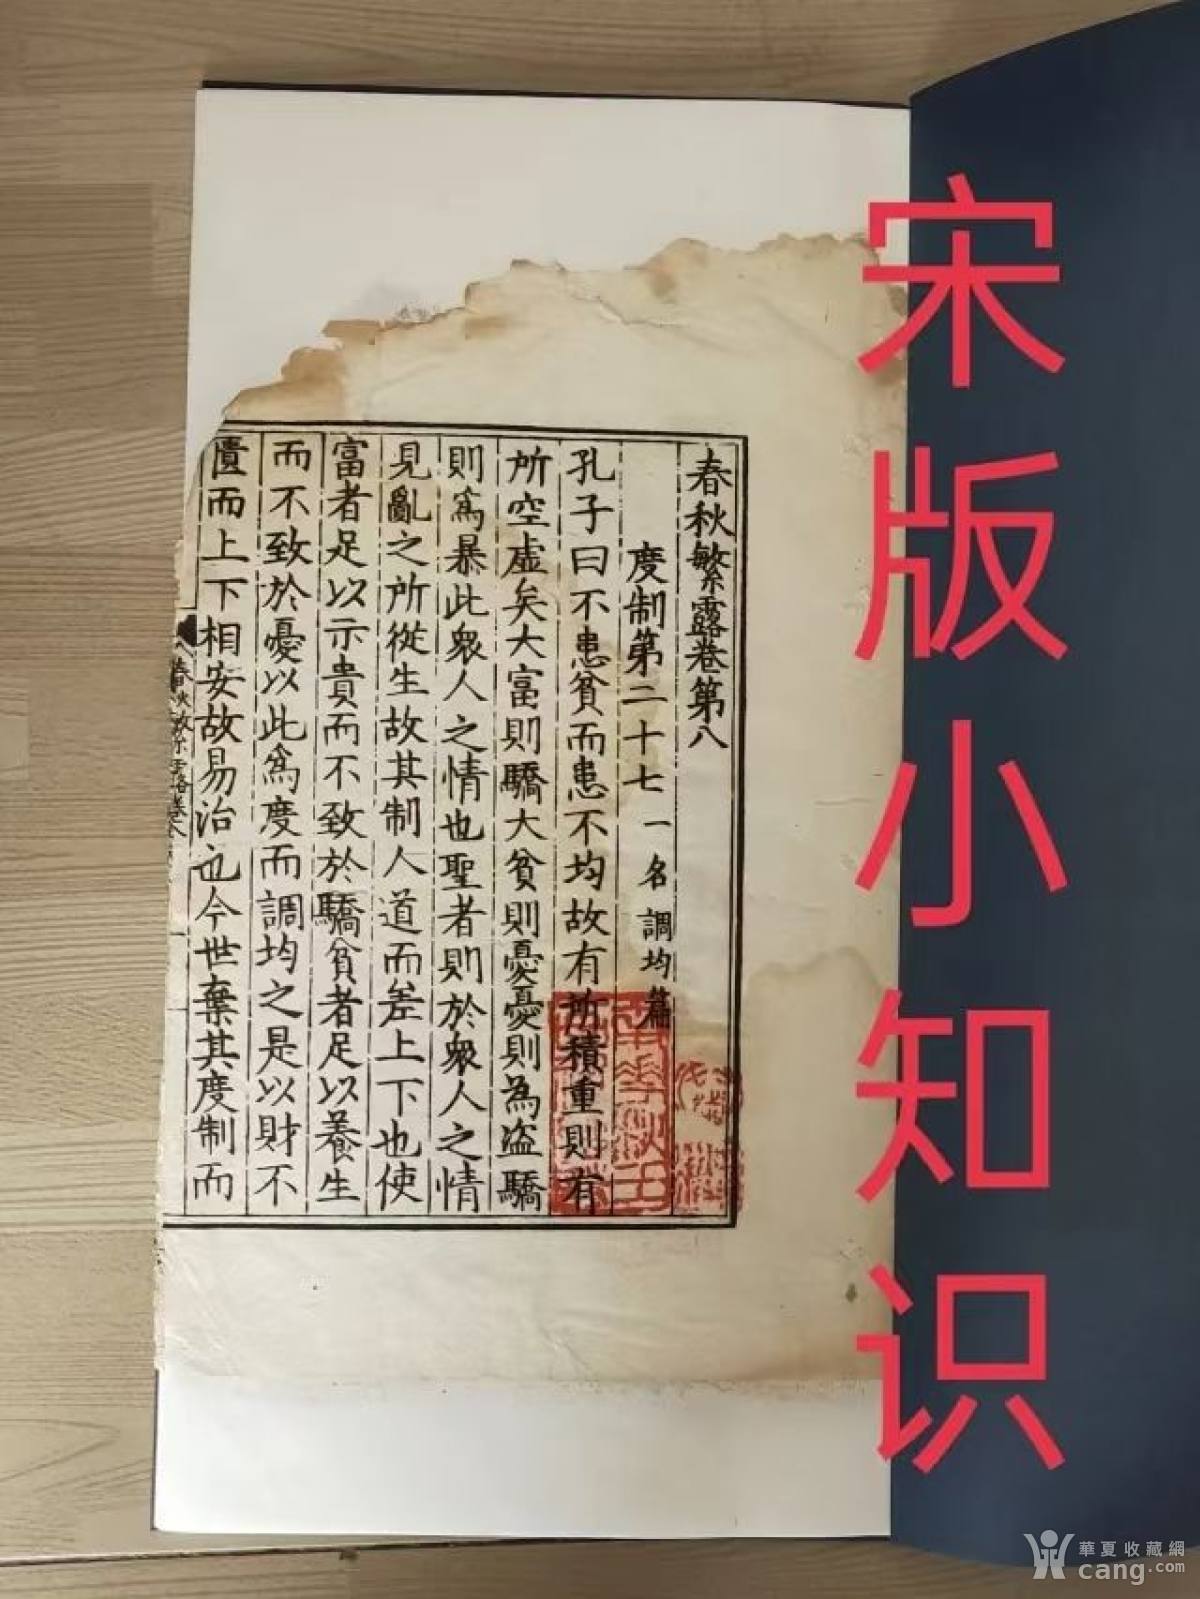 宋版小知识
春秋繁露卷第八
度制第二十七 一名調均篇
孔子曰不患貧而患不均故有所積重則有
所空虛矣大富則驕大貧則憂憂則為盗驕
則為暴此衆人之情也聖者則於衆人之情
見亂之所從生故其制人道而差上下也使
富者足以示貴而不致於驕貧者足以養生
而不致於憂以此為度而調均之是以財不
匱而上下相安故易治也今世棄其度制而
春秋繁露卷八
華夏收藏網
cang.com